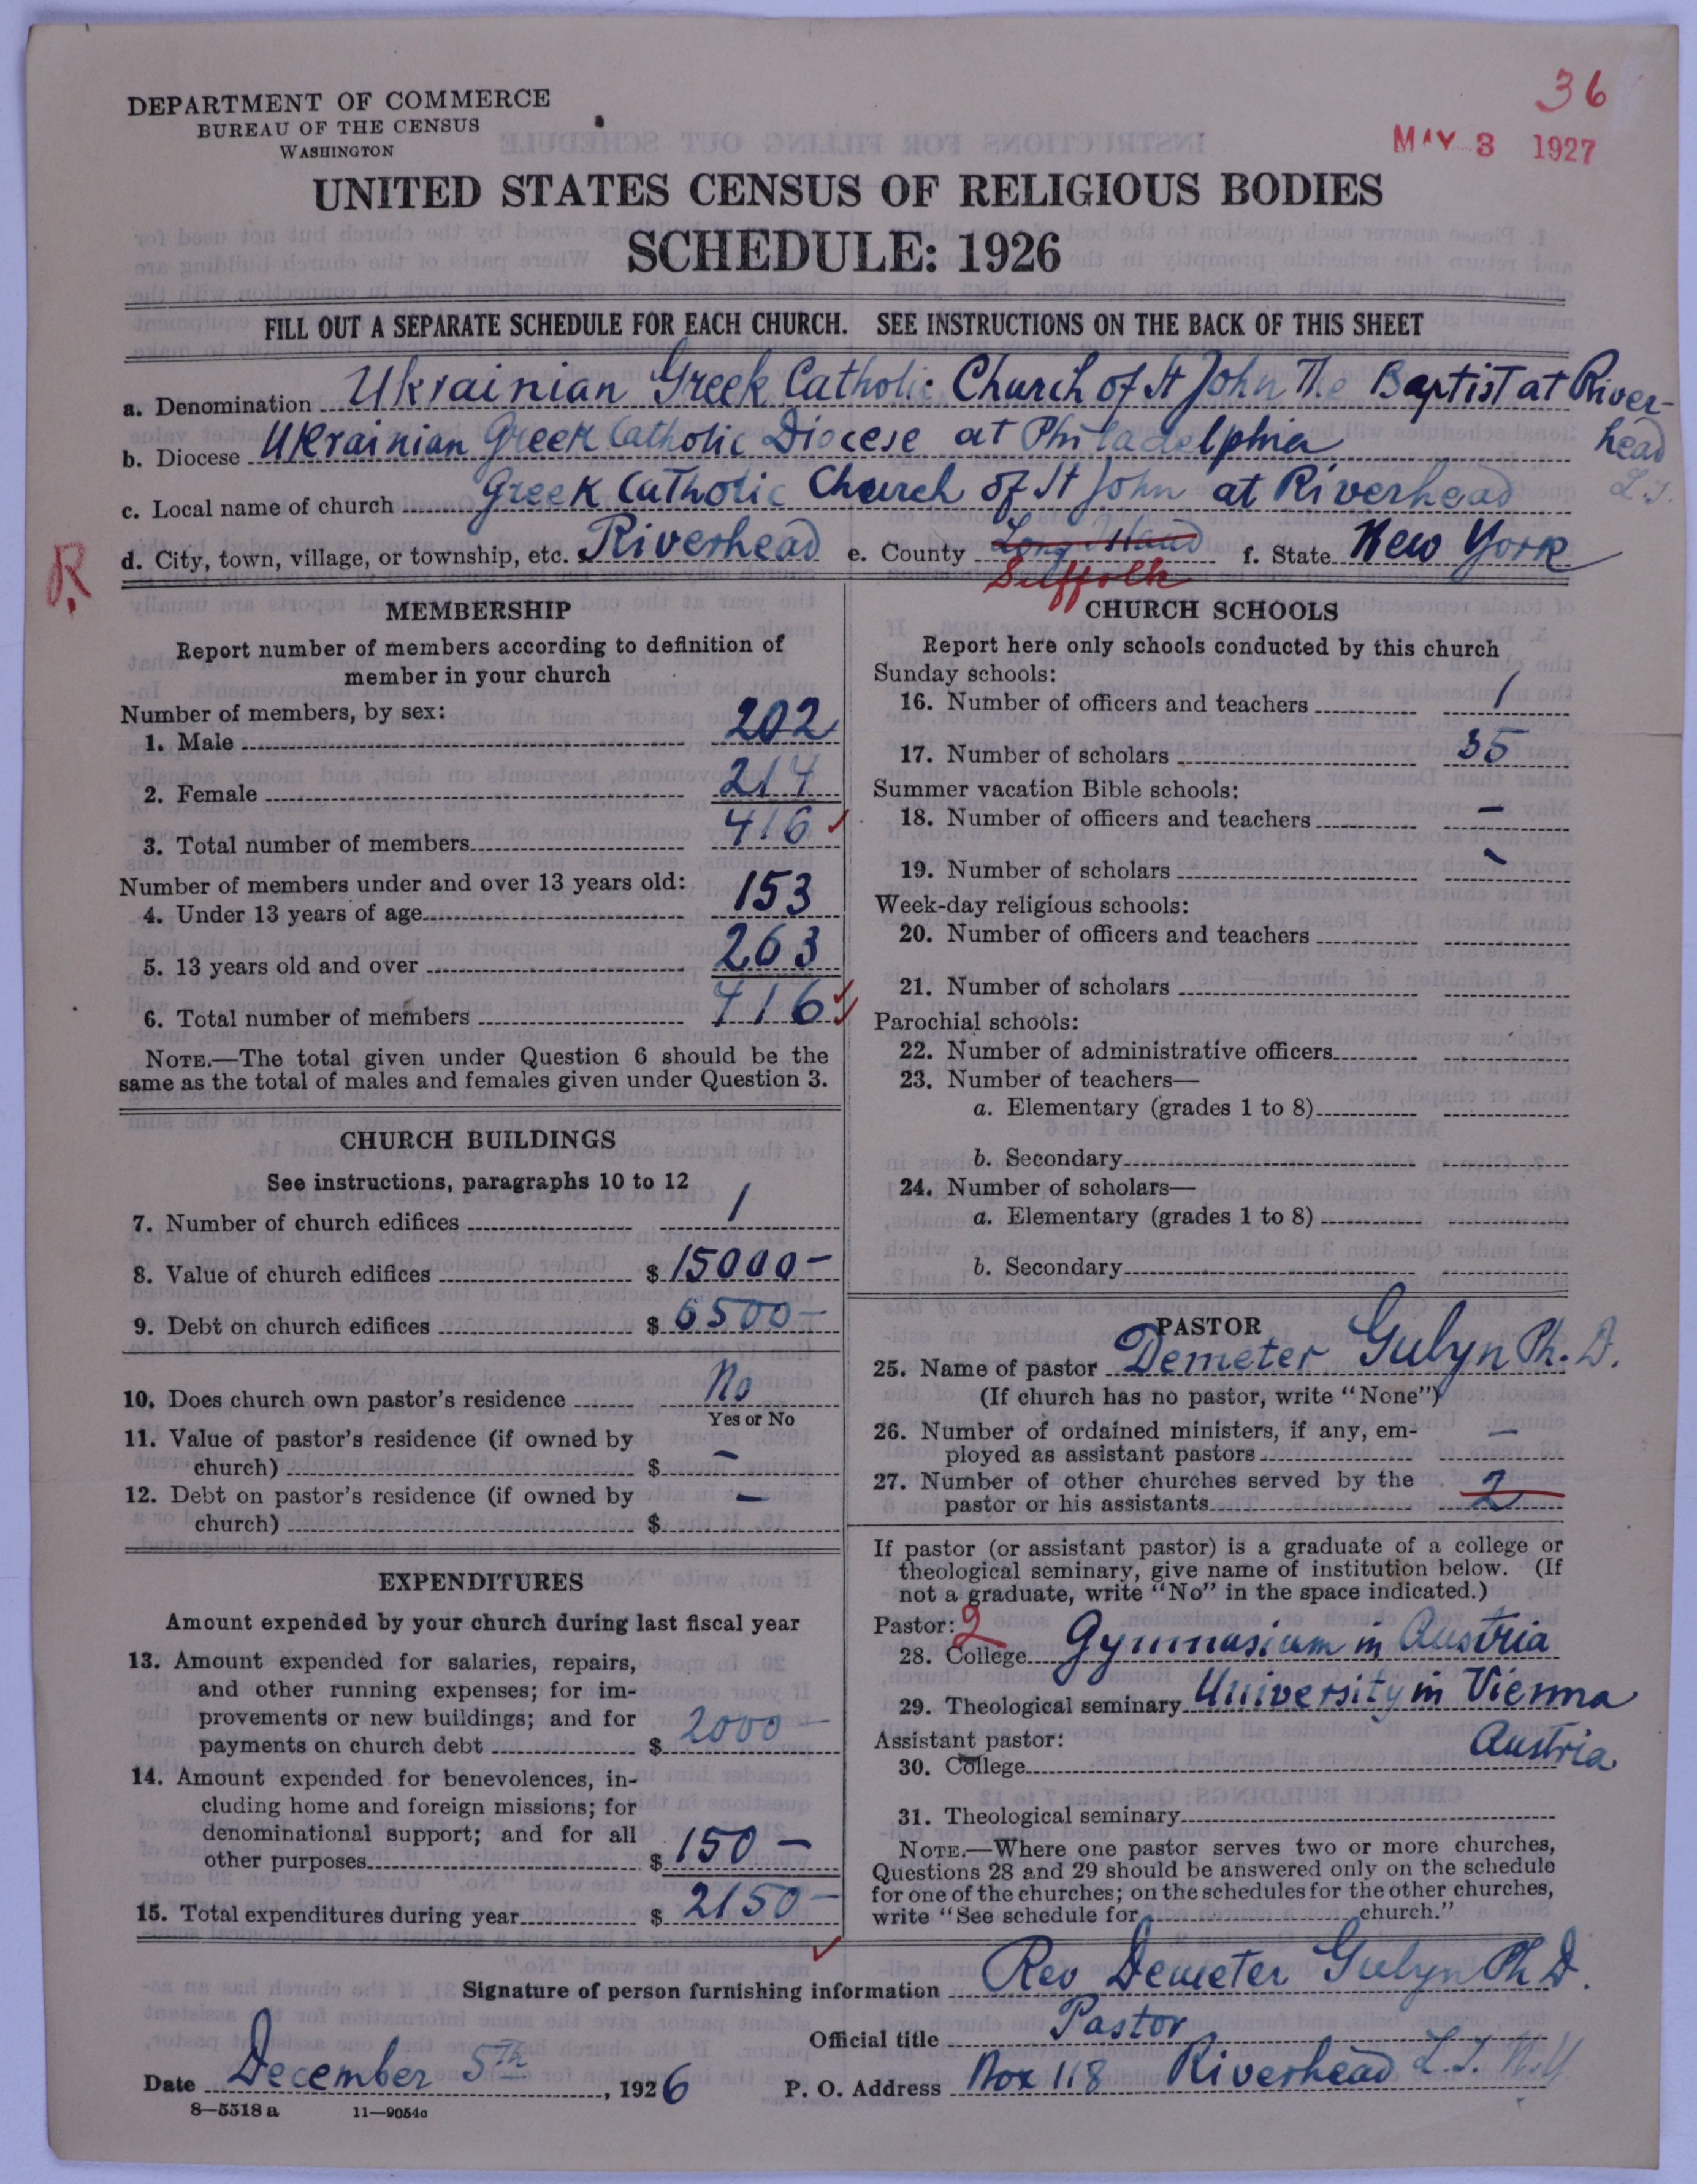 36
DEPARTMENT OF COMMERCE
BUREAU OF THE CENSUS
WASHINGTON
MAY 3 1927
UNITED STATES CENSUS OF RELIGIOUS BODIES
SCHEDULE: 1926
FILL OUT A SEPARATE SCHEDULE FOR EACH CHURCH. SEE INSTRUCTIONS ON THE BACK OF THIS SHEET
a. Denomination Ukrainian Greek Catholic Church of St John The Baptist at River-
head
L.I.
b. Diocese Ukrainian Greek Catholic Diocese at Philadelphia
c. Local name of church Greek Catholic Church of St John at Riverhead
d. City, town, village, or township, etc. Riverhead e. County Long Island f. State New York
Suffolk
R.
MEMBERSHIP
Report number of members according to definition of
member in your church
Number of members, by sex:
1. Male 202
2. Female 214
3. Total number of members 416
Number of members under and over 13 years old:
4. Under 13 years of age 153
5. 13 years old and over 263
6. Total number of members 416
NOTE.—The total given under Question 6 should be the
same as the total of males and females given under Question 3.
CHURCH BUILDINGS
See instructions, paragraphs 10 to 12
7. Number of church edifices 1
8. Value of church edifices $ 15000-
9. Debt on church edifices $ 6500-
10. Does church own pastor's residence No
Yes or No
11. Value of pastor's residence (if owned by
church) $ -
12. Debt on pastor's residence (if owned by
church) $ -
EXPENDITURES
Amount expended by your church during last fiscal year
13. Amount expended for salaries, repairs,
and other running expenses; for im-
provements or new buildings; and for
payments on church debt $ 2000-
14. Amount expended for benevolences, in-
cluding home and foreign missions; for
denominational support; and for all
other purposes $ 150-
15. Total expenditures during year $ 2150-
CHURCH SCHOOLS
Report here only schools conducted by this church
Sunday schools:
16. Number of officers and teachers 1
17. Number of scholars 35
Summer vacation Bible schools:
18. Number of officers and teachers -
19. Number of scholars -
Week-day religious schools:
20. Number of officers and teachers
21. Number of scholars
Parochial schools:
22. Number of administrative officers
23. Number of teachers—
a. Elementary (grades 1 to 8)
b. Secondary
24. Number of scholars—
a. Elementary (grades 1 to 8)
b. Secondary
PASTOR
25. Name of pastor Demeter Gulyn Ph. D.
(If church has no pastor, write "None")
26. Number of ordained ministers, if any, em-
ployed as assistant pastors -
27. Number of other churches served by the
pastor or his assistants 2
If pastor (or assistant pastor) is a graduate of a college or
theological seminary, give name of institution below. (If
not a graduate, write "No" in the space indicated.)
Pastor: 2
28. College Gymnasium in Austria
29. Theological seminary University in Vienna
Austria
Assistant pastor:
30. College
31. Theological seminary
NOTE.—Where one pastor serves two or more churches,
Questions 28 and 29 should be answered only on the schedule
for one of the churches; on the schedules for the other churches,
write "See schedule for church."
Signature of person furnishing information Rev Demeter Gulyn Ph D.
Official title Pastor
Date December 5th, 1926 P. O. Address Box 118 Riverhead L. I. N.Y
8—5518 a 11—9054c